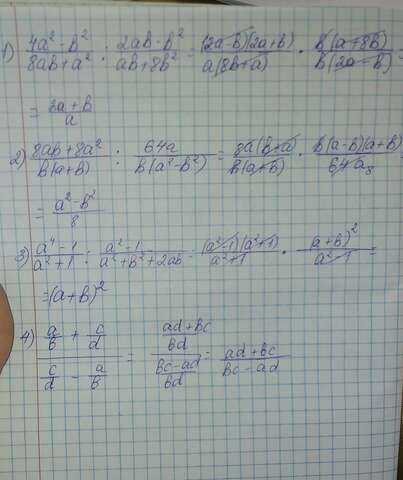 1) (4a² - b²)/(8ab + a²) : (2ab - b²)/(ab + 8b²) = ((2a - b)(2a + b))/(a(8b + a)) · (b(a + 8b))/(b(2a - b)) =
= (2a + b)/a
2) (8ab + 8a²)/(b(a + b)) : 64a/(b(a² - b²)) = (8a(b + a))/(b(a + b)) · (b(a - b)(a + b))/(64a) 8
= (a² - b²)/8
3) (a⁴ - 1)/(a² + 1) : (a² - 1)/(a² + b² + 2ab) = ((a² - 1)(a² + 1))/(a² + 1) · (a + b)²/(a² - 1) =
= (a + b)²
4) (a/b + c/d)/(c/d - a/b) = ((ad + bc)/bd)/((bc - ad)/bd) = (ad + bc)/(bc - ad)